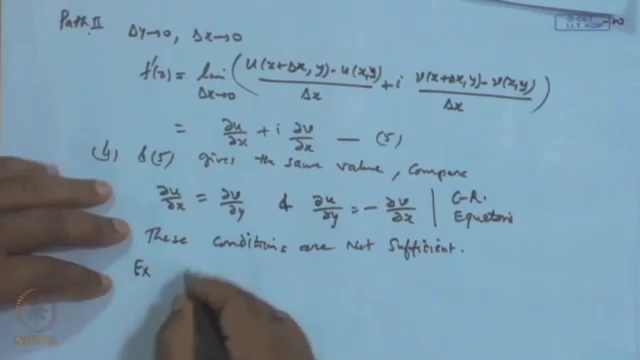 Path II Δy→0, Δx→0
f'(z) = lim Δx→0 ( u(x+Δx, y) - u(x,y) / Δx + i v(x+Δx, y) - v(x,y) / Δx )
= ∂u/∂x + i ∂v/∂x — (5)
(4) & (5) gives the same value, compare
∂u/∂x = ∂v/∂y & ∂u/∂y = - ∂v/∂x | C-R. Equations
These conditions are Not Sufficient.
Ex
© CET
I.I.T. KGP
NPTEL